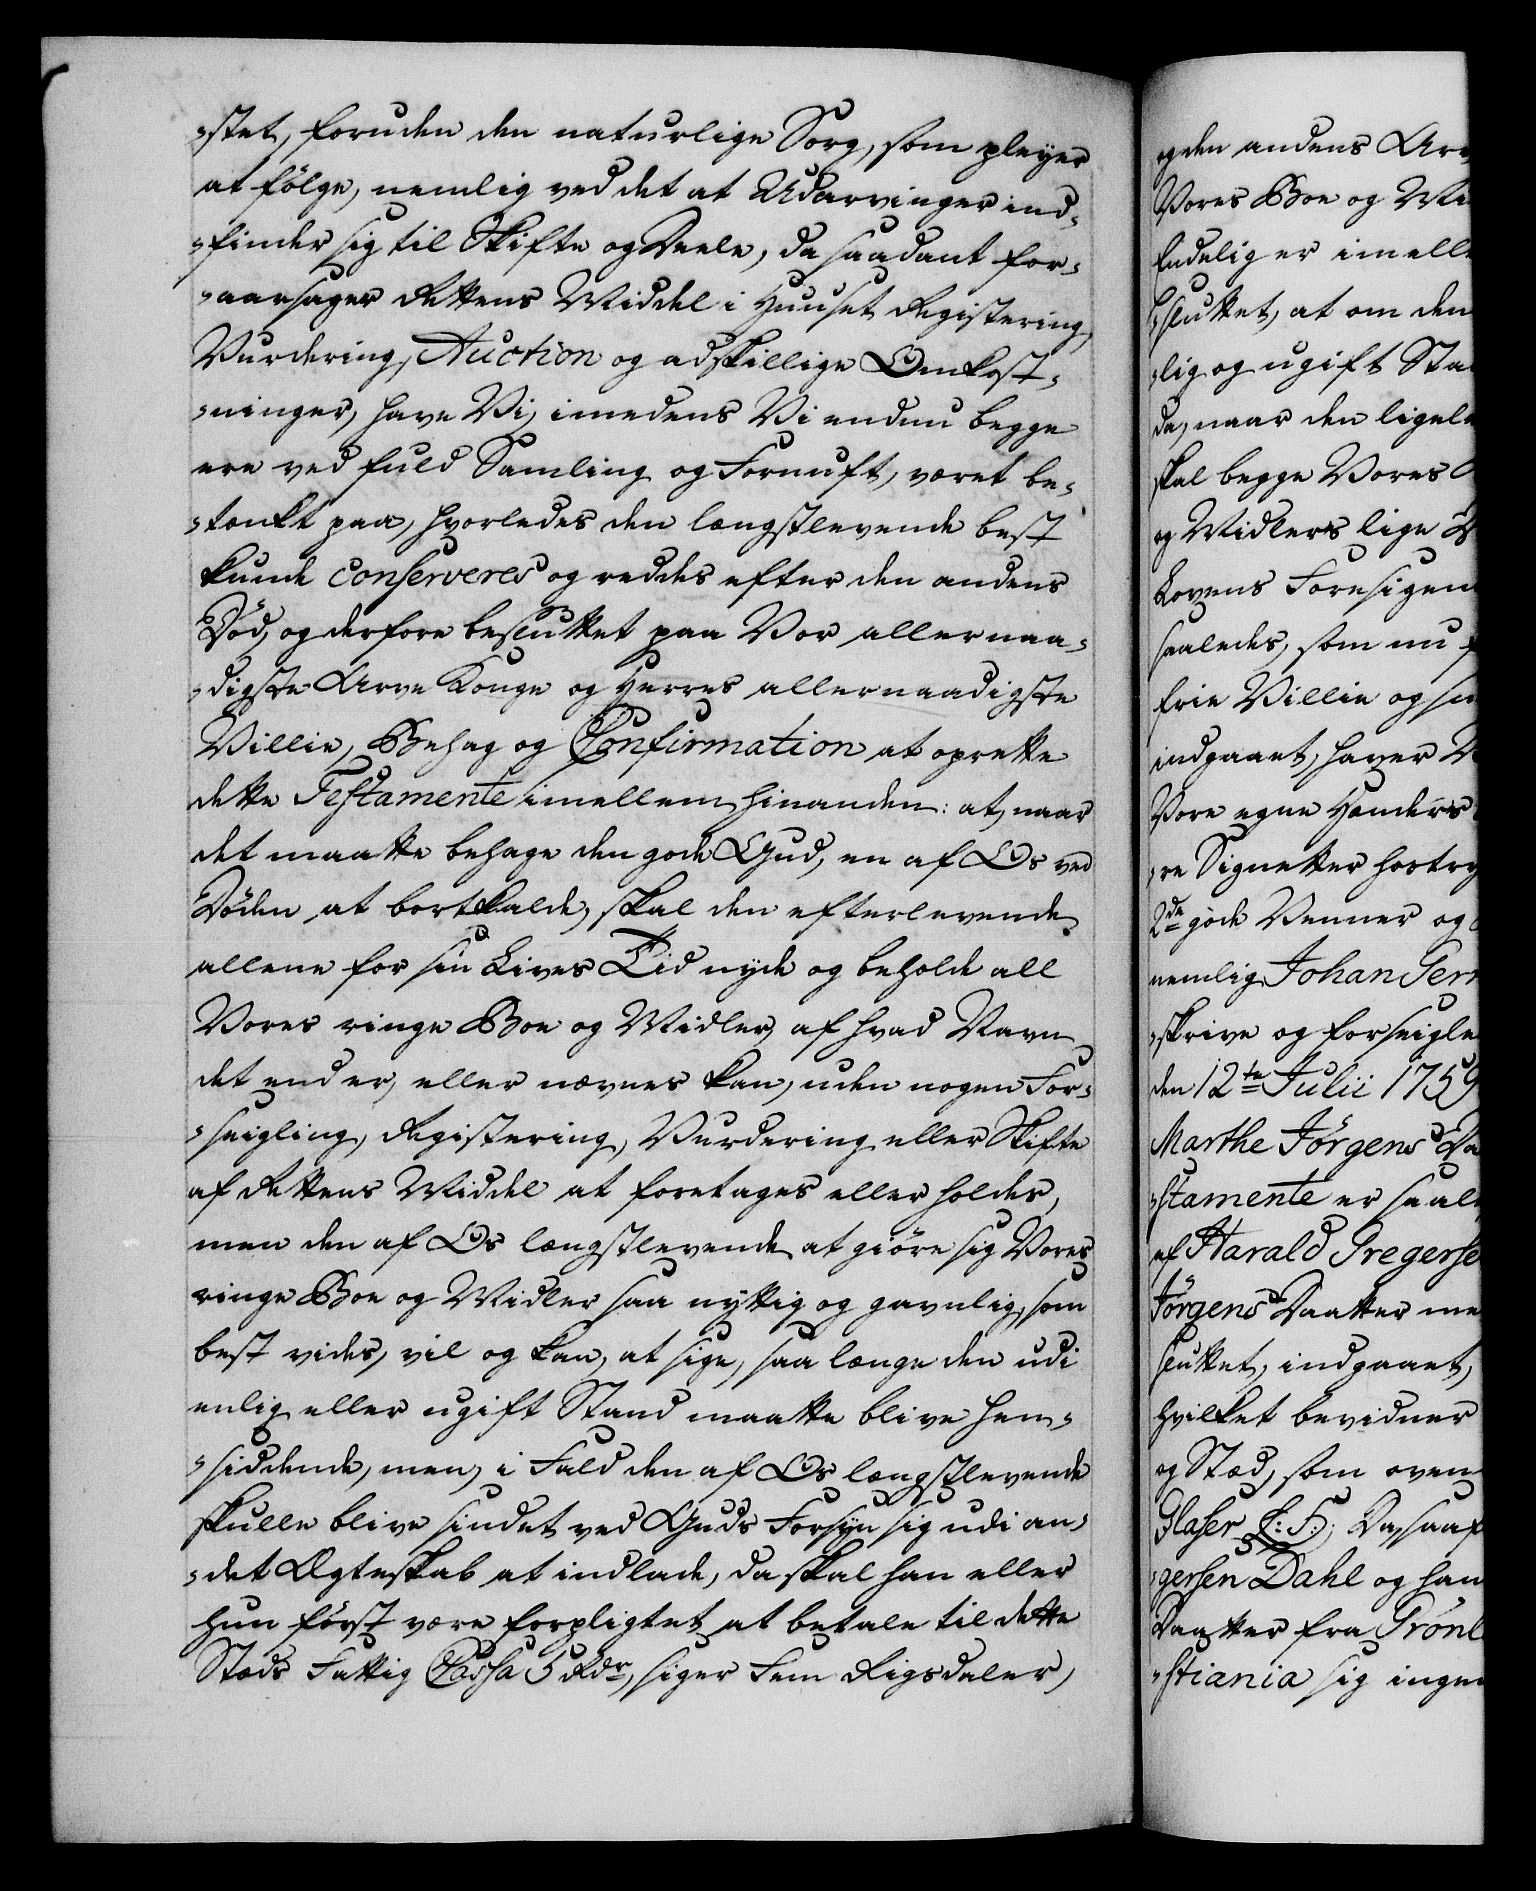 -stet, foruden den naturlige Sorg, som pleyer
at følge, nemlig ved det at Udarvinger ind-
-finder sig til Skifte og Deele, da saadant for-
-aarsager Rettens Middel i Huuset Registering,
Vurdering, Auction og adskillige Omkost-
-ninger, have Vi, imedens Vi endnu begge
ere ved fuld Samling og Fornuft, været be-
-tænkt paa, hvorledes den længstlevende best
kunde conserveres og reddes efter den andens
Død, og derfore besluttet paa Vor allernaa-
-digste Arve Konge og Herres allernaadigste
Villie, Behag og Confirmation at oprette
dette Testamente imellem hinanden: at, naar
det maatte behage den gode Gud, en af Os ved
Døden at bortkalde, skal den efterlevende
allene for sin Lives Tid nyde og beholde all
Vores ringe Boe og Midler, af hvad Navn
det end er, eller nævnes kan, uden nogen For-
-seigling, Registering, Vurdering eller Skifte
af Rettens Middel at foretages eller holdes,
men den af Os længstlevende at giøre sig Vores
ringe Boe og Midler saa nyttig og gavnlig, som
best vides, vil og kan, at sige, saa længe den udi
enlig eller ugift Stand maatte blive hen-
-siddende, men, i Fald den af Os længstlevende
skulle blive sindet ved Guds Forsyn sig udi an-
-det Ægteskab at indlade, da skal han eller
hun først være forpligtet at betale til dette
Stæds Fattig Cassa 5 Rdr, siger Fem Rigsdaler,
og den andens Arv
Vores Boe og Mi
Endelig er imelle
-sluttet, at om den
-lig og ugift Sta
da, naar den ligele
skal begge Vores
og Midlers lige
Lovens Foresigen
saaledes, som nu
frie Villie og
indgaaet, haver
Vore egne Hænders
-re Signetter hostry
2de gode Venner og
nemlig Johan
-skrive og forseigle
den 12te Julii 1759
Marthe Jørgens
-stamente er saal
af Harald Gregerse
Jørgens Daatter me
sluttet, indgaaet,
hvilket bevidner
og Stæd, som oven
Glaser L: S:
-gersen Dahl og han
Daatter fra Grønl
-stiania sig ingen